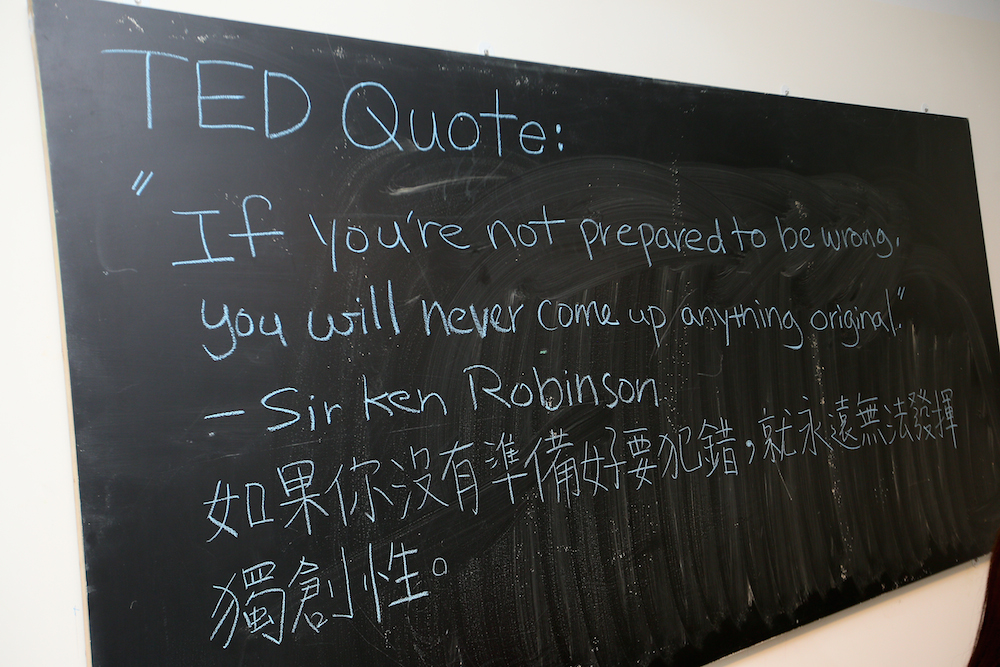 TED Quote:
"If you're not prepared to be wrong,
you will never come up anything original."
-Sir Ken Robinson
如果你沒有準備好要犯錯，就永遠無法發揮
獨創性。